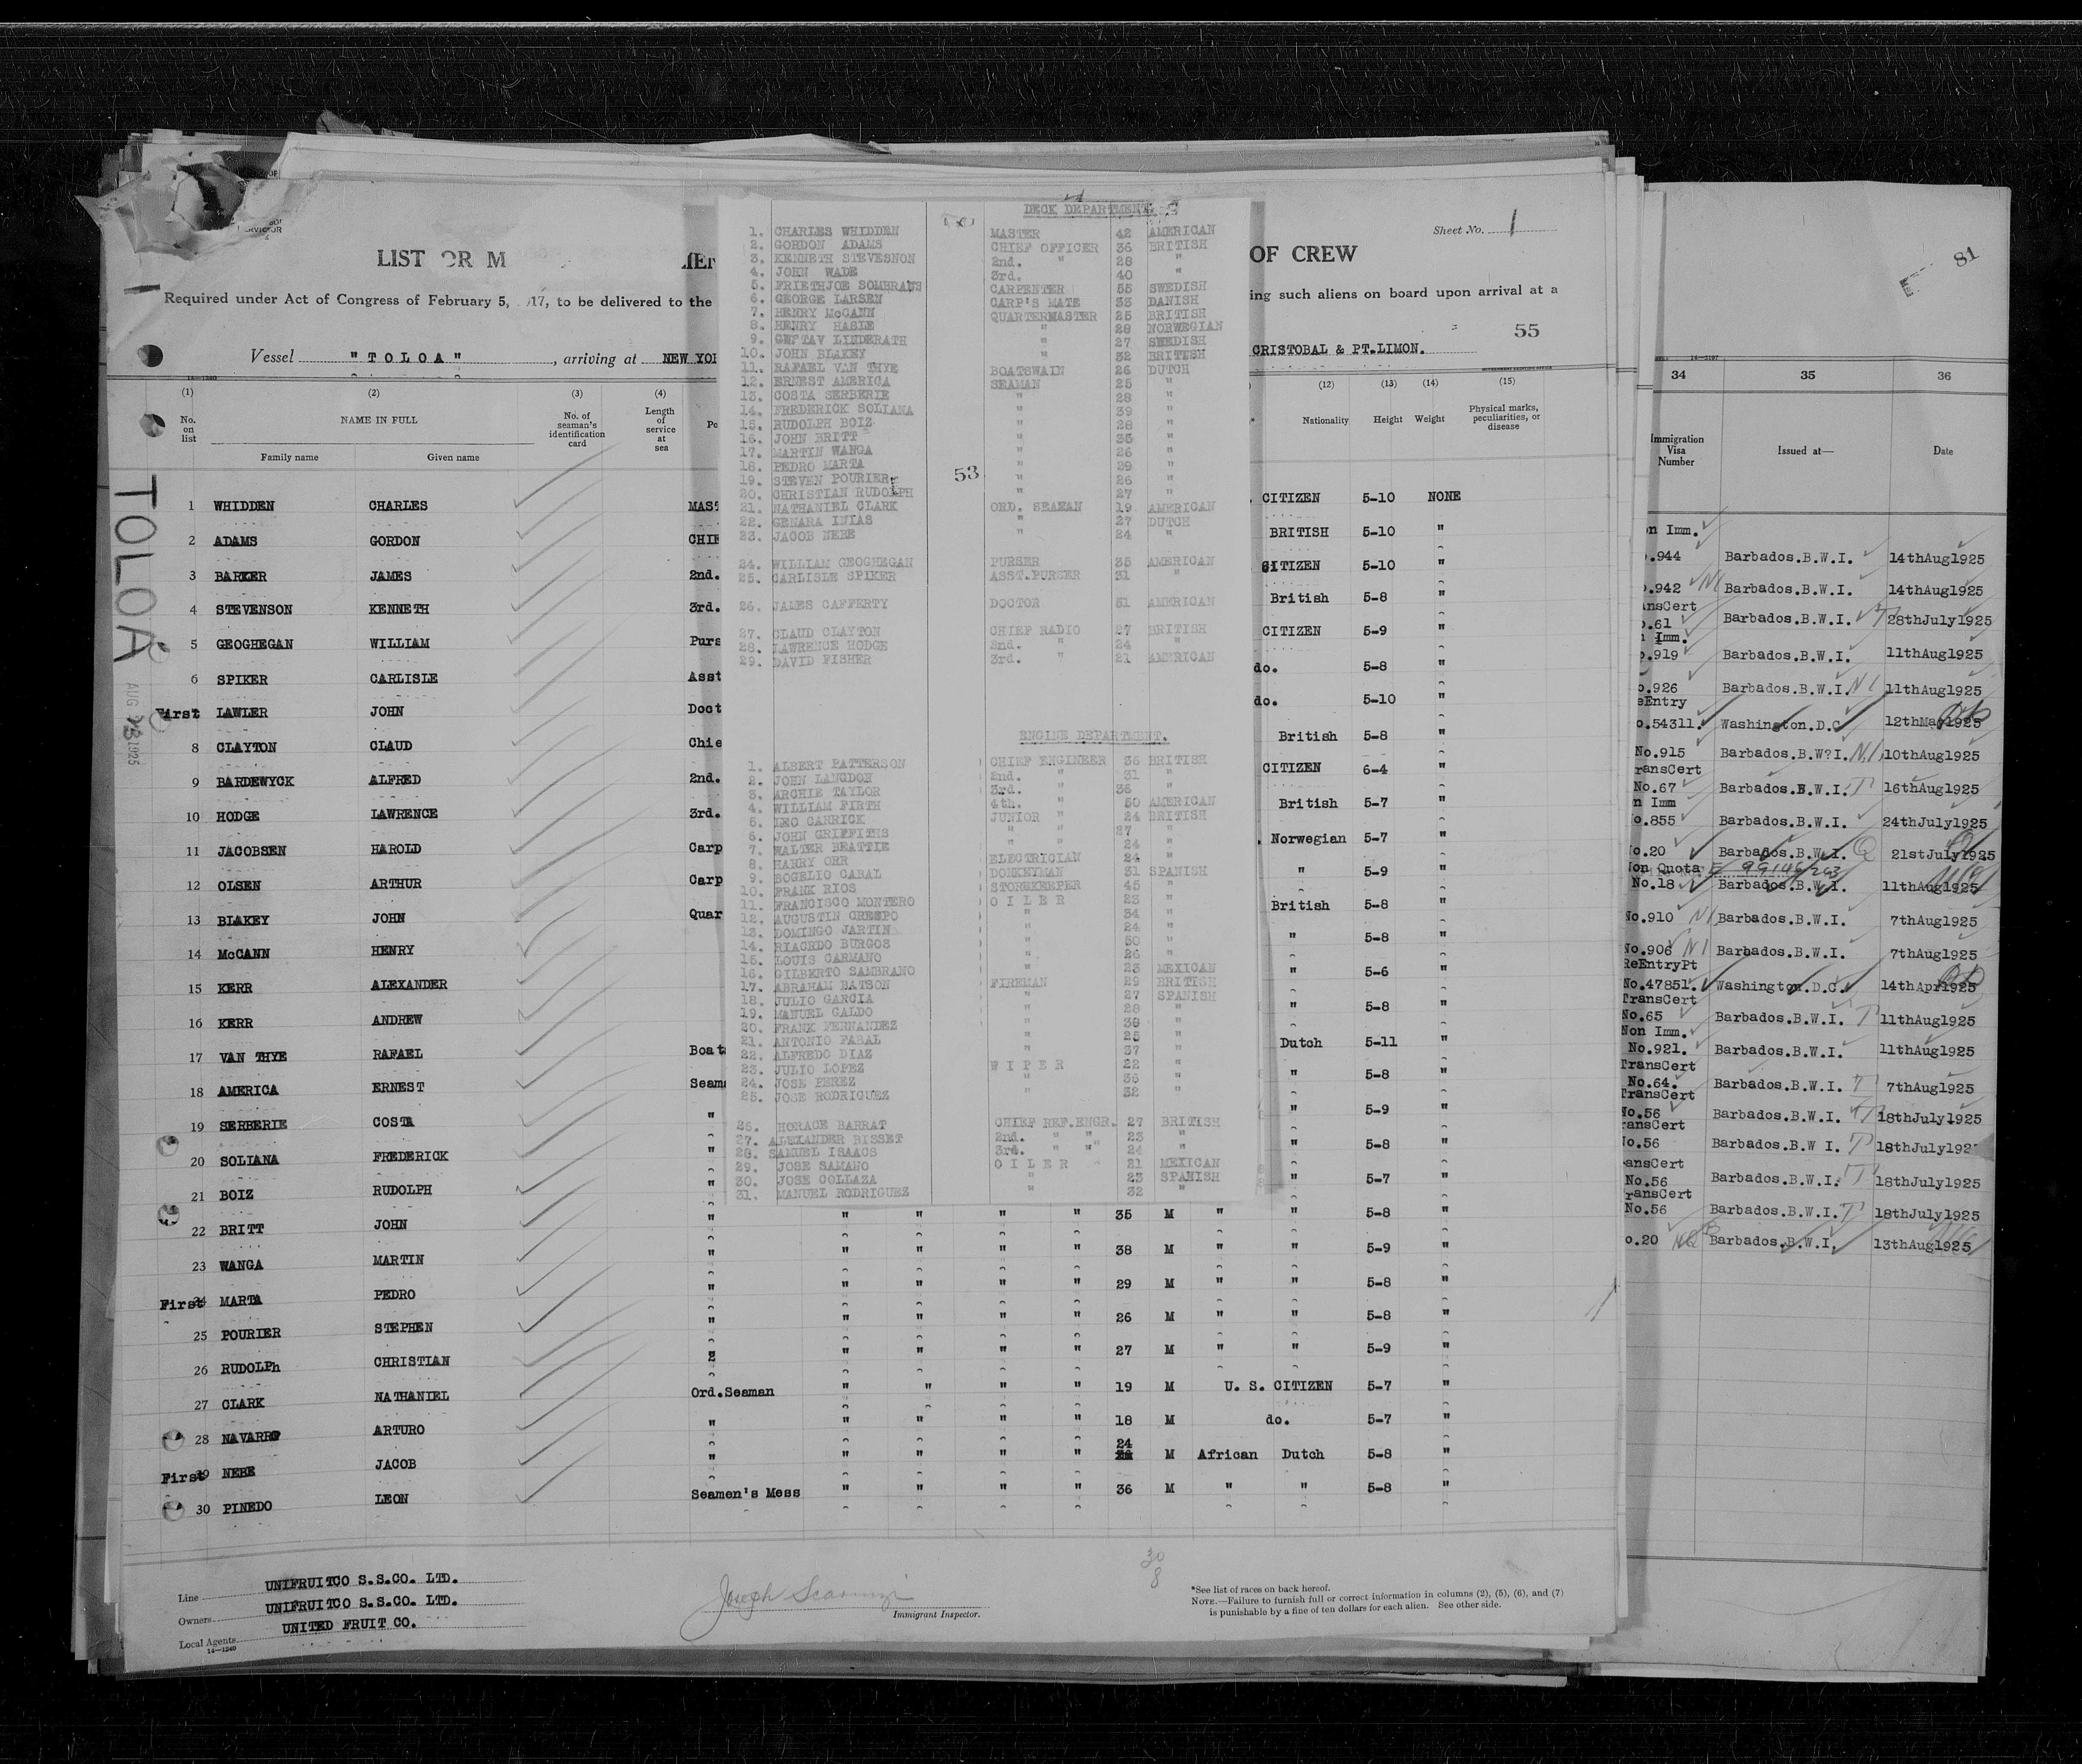 Sheet No. 1
LIST OR M
OF CREW
Required under Act of Congress of February 5, 17, to be delivered to the
ing such aliens on board upon arrival at a
55
Vessel "TOLOA", arriving at NEW YOR
CRISTOBAL & PT.LIMON.
(1) (2) (3) (4) (12) (13) (14) (15)
No. on list
NAME IN FULL
Family name Given name
No. of seaman's identification card
Length of service at sea
Nationality Height Weight
Physical marks, peculiarities, or disease
1 WHIDDEN CHARLES MAST CITIZEN 5-10 NONE
2 ADAMS GORDON CHIE BRITISH 5-10 "
3 BARKER JAMES 2nd. CITIZEN 5-10 "
4 STEVENSON KENNETH 3rd. British 5-8 "
5 GEOGHEGAN WILLIAM Purs CITIZEN 5-9 "
6 SPIKER CARLISLE Asst do. 5-8 "
First LAWLER JOHN Doct do. 5-10 "
8 CLAYTON CLAUD Chie British 5-8 "
9 BARDEWYCK ALFRED 2nd. CITIZEN 6-4 "
10 HODGE LAWRENCE 3rd. British 5-7 "
11 JACOBSEN HAROLD Carp Norwegian 5-7 "
12 OLSEN ARTHUR Carp " 5-9 "
13 BLAKEY JOHN Quar British 5-8 "
14 McCANN HENRY " 5-8 "
15 KERR ALEXANDER " 5-6 "
16 KERR ANDREW " 5-8 "
17 VAN THYE RAFAEL Boat Dutch 5-11 "
18 AMERICA ERNEST Seam " 5-8 "
19 SERBERIE COSTA " " 5-9 "
20 SOLIANA FREDERICK " " 5-8 "
21 BOIZ RUDOLPH " " 5-7 "
22 BRITT JOHN " " " " " 35 M " " 5-8 "
23 WANGA MARTIN " " " " " 38 M " " 5-9 "
First 24 MARTA PEDRO " " " " " 29 M " " 5-8 "
25 POURIER STEPHEN " " " " " 26 M " " 5-8 "
26 RUDOLPh CHRISTIAN " " " " " 27 M " " 5-9 "
27 CLARK NATHANIEL Ord.Seaman " " " " 19 M U. S. CITIZEN 5-7 "
28 NAVARRO ARTURO " " " " " 18 M do. 5-7 "
First 29 NEBE JACOB " " " " " 24 M African Dutch 5-8 "
30 PINEDO LEON Seamen's Mess " " " " 36 M " " 5-8 "
Line UNIFRUITCO S.S.CO. LTD.
Owners UNIFRUITCO S.S.CO. LTD.
Local Agents UNITED FRUIT CO.
14-1240
Immigrant Inspector.
30
8
*See list of races on back hereof.
NOTE.—Failure to furnish full or correct information in columns (2), (5), (6), and (7)
is punishable by a fine of ten dollars for each alien. See other side.
TOLOA
AUG 1925
DECK DEPARTMENT.
1. CHARLES WHIDDEN MASTER 42 AMERICAN
2. GORDON ADAMS CHIEF OFFICER 36 BRITISH
3. KENNETH STEVESNON 2nd. " 28 "
4. JOHN WADE 3rd. 40 "
5. FRIETHJOE SOMBRANS CARPENTER 55 SWEDISH
6. GEORGE LARSEN CARP'S MATE 33 DANISH
7. HENRY McCANN QUARTERMASTER 25 BRITISH
8. HENRY HASLE " 28 NORWEGIAN
9. GUSTAV LINDERATH " 27 SWEDISH
10. JOHN BLAKEY " 32 BRITISH
11. RAFAEL VAN THYE BOATSWAIN 26 DUTCH
12. ERNEST AMERICA SEAMAN 25 "
13. COSTA SERBERIE " 28 "
14. FREDERICK SOLIANA " 39 "
15. RUDOLPH BOIZ " 28 "
16. JOHN BRITT " 35 "
17. MARTIN WANGA " 26 "
18. PEDRO MARTA " 29 "
19. STEVEN POURIER " 26 "
20. CHRISTIAN RUDOLPH " 27 "
21. NATHANIEL CLARK ORD. SEAMAN 19 AMERICAN
22. GENARA INIAS " 27 DUTCH
23. JACOB NEBE " 24 "
53
24. WILLIAM GEOGHEGAN PURSER 35 AMERICAN
25. CARLISLE SPIKER ASST.PURSER 31 "
26. JAMES CAFFERTY DOCTOR 51 AMERICAN
27. CLAUD CLAYTON CHIEF RADIO 27 BRITISH
28. LAWRENCE HODGE 2nd. " 24 "
29. DAVID FISHER 3rd. " 21 AMERICAN
ENGINE DEPARTMENT.
1. ALBERT PATTERSON CHIEF ENGINEER 36 BRITISH
2. JOHN LANGDON 2nd. " 31 "
3. ARCHIE TAYLOR 3rd. " 36 "
4. WILLIAM FIRTH 4th. " 50 AMERICAN
5. LEO CARRICK JUNIOR " 24 BRITISH
6. JOHN GRIFFITHS " " 27 "
7. WALTER BEATTIE " " 24 "
8. HARRY ORR ELECTRICIAN 24 "
9. ROGELIO CABAL DONKEYMAN 31 SPANISH
10. FRANK RIOS STOREKEEPER 45 "
11. FRANCISCO MONTERO OILER 23 "
12. AUGUSTIN CRESPO " 34 "
13. DOMINGO JARTIN " 24 "
14. RIACRDO BURGOS " 50 "
15. LOUIS CARMANO " 26 "
16. GILBERTO SAMBRANO " 23 MEXICAN
17. ABRAHAM BATSON FIREMAN 29 BRITISH
18. JULIO GARCIA " 27 SPANISH
19. MANUEL GALDO " 28 "
20. FRANK FERNANDEZ " 38 "
21. ANTONIO FABAL " 25 "
22. ALFREDO DIAZ " 37 "
23. JULIO LOPEZ WIPER 22 "
24. JOSE PEREZ " 36 "
25. JOSE RODRIGUEZ " 32 "
26. HORACE BARRAT CHIEF REF.ENGR. 27 BRITISH
27. ALEXANDER BISSET 2nd. " " 23 "
28. SAMUEL ISAACS 3rd. " " 24 "
29. JOSE SAMANO OILER 21 MEXICAN
30. JOSE COLLAZA " 23 SPANISH
31. MANUEL RODRIGUEZ " 32 "
81
34 35 36
Immigration Visa Number
Issued at—
Date
on Imm.
.944 Barbados.B.W.I. 14thAug1925
.942 NI Barbados.B.W.I. 14thAug1925
ansCert
.61 Barbados.B.W.I. T 28thJuly1925
Imm.
.919 Barbados.B.W.I. 11thAug1925
o.926 Barbados.B.W.I. NI 11thAug1925
eEntry
o.54311. Washington.D.C 12thMay1925
No.915 Barbados.B.W?I. NI 10thAug1925
ransCert
No.67 Barbados.B.W.I. T 16thAug1925
n Imm
o.855 Barbados.B.W.I. 24thJuly1925
o.20 Barbados.B.W.I. Q 21stJuly1925
on Quota
No.18 Barbados.B.W.I. 11thAug1925
No.910 NI Barbados.B.W.I. 7thAug1925
No.906 NI Barbados.B.W.I. 7thAug1925
ReEntryPt
No.47851. Washington.D.C. 14thApr1925
TransCert
No.65 Barbados.B.W.I. T 11thAug1925
Non Imm.
No.921. Barbados.B.W.I. 11thAug1925
TransCert
No.64. Barbados.B.W.I. T 7thAug1925
TransCert
No.56 Barbados.B.W.I. T 18thJuly1925
ransCert
o.56 Barbados.B.W I. T 18thJuly192
ansCert
No.56 Barbados.B.W.I. T 18thJuly1925
ransCert
No.56 Barbados.B.W.I. T 18thJuly1925
o.20 Barbados.B.W.I. 13thAug1925